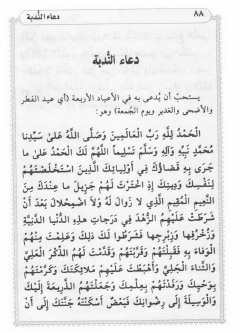 ٨٨ دعاء الندبة
دعاء الندبة
يستحبّ أن يُدعى به في الأعياد الأربعة (أي عيد الفطر
والأضحى والغدير ويوم الجُمعة) وهو:
الْحَمْدُ لِلَّهِ رَبِّ الْعَالَمِينَ وَصَلَّى اللَّهُ عَلَىٰ سَيِّدِنَا
مُحَمَّدٍ نَبِيِّهِ وَآلِهِ وَسَلَّمَ تَسْلِيماً اللَّهُمَّ لَكَ الْحَمْدُ عَلَىٰ ما
جَرَىٰ بِهِ قَضَاؤُكَ فِي أَوْلِيَائِكَ الَّذِينَ اسْتَخْلَصْتَهُمْ
لِنَفْسِكَ وَدِينِكَ إِذِ اخْتَرْتَ لَهُمْ جَزِيلَ ما عِنْدَكَ مِنَ
النَّعِيمِ الْمُقِيمِ الَّذِي لا زَوَالَ لَهُ وَلاَ اضْمِحْلالَ بَعْدَ أَنْ
شَرَطْتَ عَلَيْهِمُ الزُّهْدَ فِي دَرَجَاتِ هذِهِ الدُّنْيَا الدَّنِيَّةِ
وَزُخْرُفِها وَزِبْرِجِها فَشَرَطُوا لَكَ ذلِكَ وَعَلِمْتَ مِنْهُمُ
الْوَفَاءَ بِهِ فَقَبِلْتَهُمْ وَقَرَّبْتَهُمْ وَقَدَّمْتَ لَهُمُ الذِّكْرَ الْعَلِيَّ
وَالثَّنَاءَ الْجَلِيَّ وَأَهْبَطْتَ عَلَيْهِمْ مَلائِكَتَكَ وَكَرَّمْتَهُمْ
بِوَحْيِكَ وَرَفَدْتَهُمْ بِعِلْمِكَ وَجَعَلْتَهُمُ الذَّرِيعَةَ إِلَيْكَ
وَالْوَسِيلَةَ إِلَىٰ رِضْوَانِكَ فَبَعْضٌ أَسْكَنْتَهُ جَنَّتَكَ إِلَىٰ أَنْ